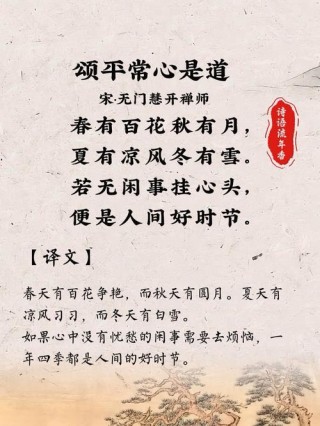 颂平常心是道
宋·无门慧开禅师
春有百花秋有月，
夏有凉风冬有雪。
若无闲事挂心头，
便是人间好时节。
诗语流年香
【译文】
春天有百花争艳，而秋天有圆月。夏天有
凉风习习，而冬天有白雪。
如果心中没有忧愁的闲事需要去烦恼，一
年四季都是人间的好时节。